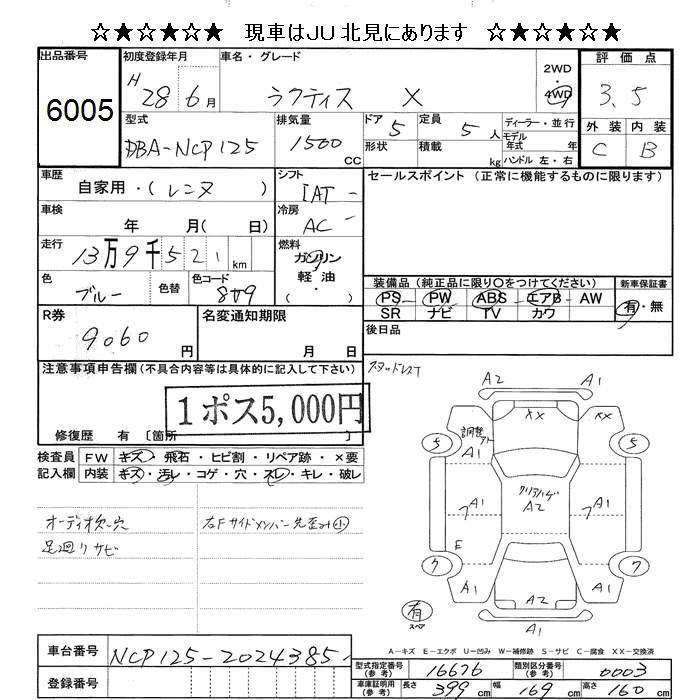 ☆★☆★☆ 現車はJU北見にあります ☆★☆★☆
出品番号
6005
初度登録年月
H 28年 6月
車名・グレード
ラクティス X
2WD
・
4WD
評価点
3.5
外装 内装
C B
型式
DBA-NCP125
排気量
1500 CC
ドア 5
形状
定員 5 人
積載 kg
ディーラー・並行
モデル年式 年
ハンドル 左・右
車歴
自家用・(レンヌ )
シフト
IAT
セールスポイント (正常に機能するものに限ります)
車検
年 月( 日)
冷房
AC
走行
13万9千521 km
燃料
ガソリン
・
軽油
( )
色
ブルー
色替
色コード
装備品 (純正品に限り〇をつけてください)
PS PW ABS エアB AW
SR ナビ TV カワ
新車保証書
有・無
R券
9060 円
名変通知期限
月 日
後日品
注意事項申告欄(不具合内容等は具体的に記入して下さい)
1ポス5,000円
修復歴 有 〔箇所 〕
スタッドレス
検査員記入欄
FW キズ・飛石・ヒビ割・リペア跡・×要
内装 キズ・汚レ・コゲ・穴・スレ・キレ・破レ
オーディオ欠穴
足廻りサビ
右Fサイドメンバー先歪み小
A2 A1
XX XX
調整アト
5 5
A1 A1
クリアハゲ
A2
A1 A1
E
7 7
A1 A2 A1
有
スペア
A1
A-キズ E-エクボ U-凹み W-補修跡 S-サビ C-腐食 XX-交換済
車台番号
NCP125-2024385
型式指定番号(参考)
16676
類別区分番号(参考)
0003
車庫証明用(参考)
長さ 399 cm
幅 169 cm
高さ 160 cm